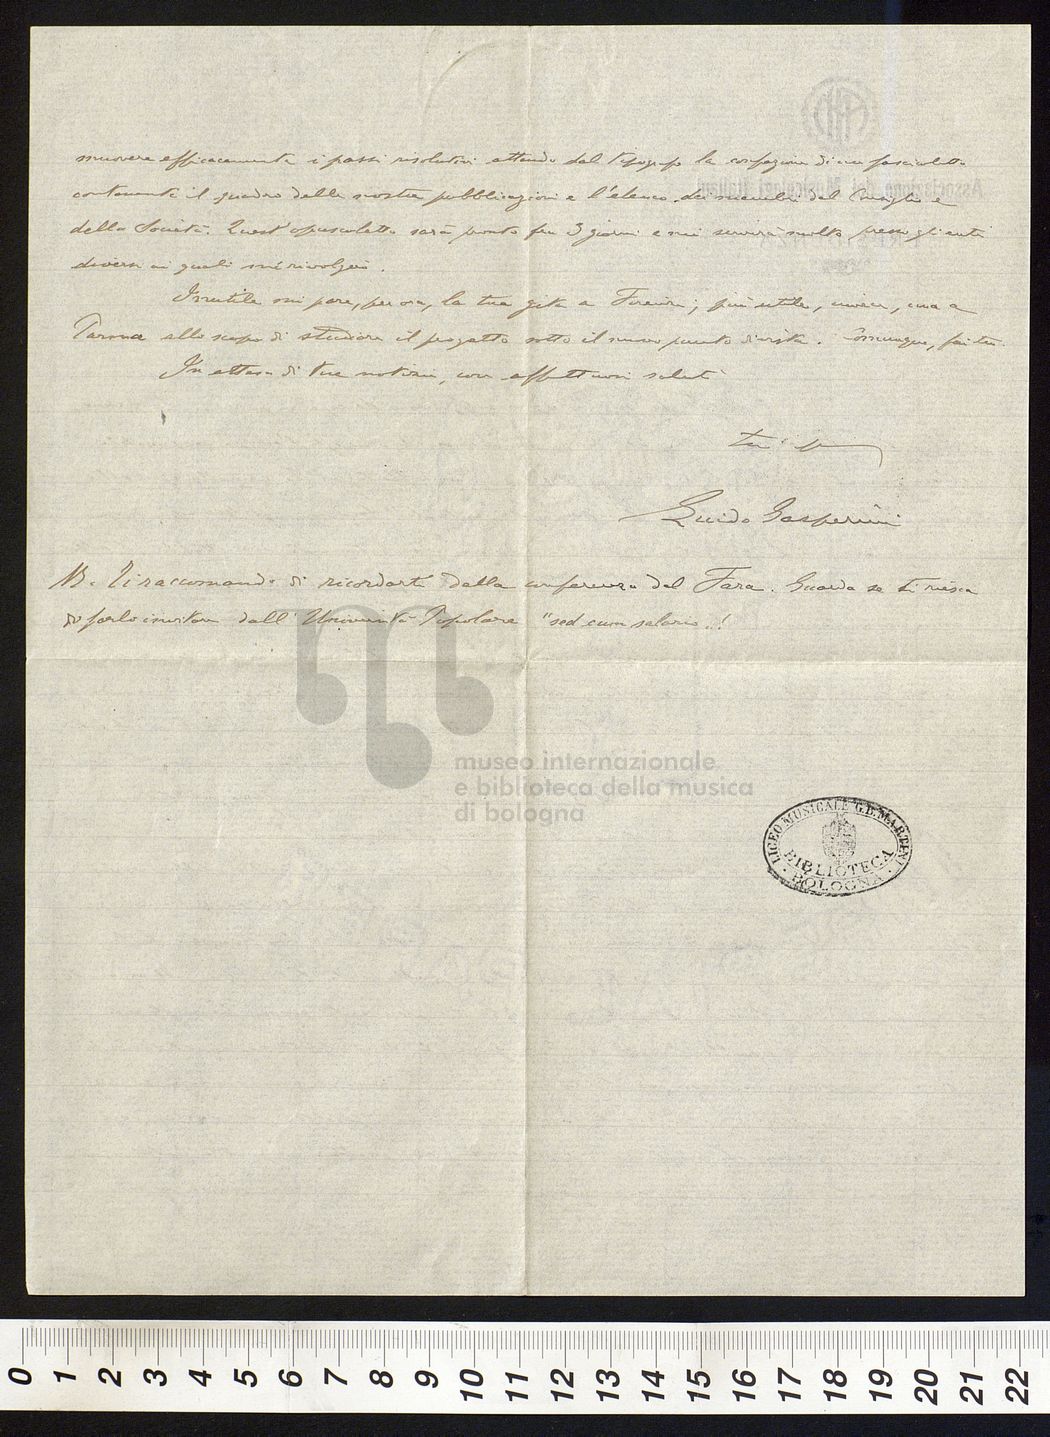 muovere efficacemente i passi risolutivi attendo dal tipografo la confezione di un fascioletto
contenente il quadro delle nostre pubblicazioni e l'elenco dei membri del Consiglio e
della Società. Quest'opuscoletto sarà pronto fra 3 giorni e mi servirà molto presso gli enti
diversi ai quali mi rivolgerò.
Inutile mi pare, per ora, la tua gita a Firenze; più utile, invece, una a
Parma allo scopo di studiare il progetto sotto il nuovo punto di vista. Comunque, fai tu.
In attesa di tue notizie, con affettuosi saluti
Guido Gasperini
NB. Ti raccomando di ricordarti della conferenza del Fara. Guarda se ti riesce
di farlo invitare dall'Università Popolare "sed cum salario..!
museo internazionale
e biblioteca della musica
di bologna
LICEO MUSICALE G.B. MARTINI
BIBLIOTECA
BOLOGNA
Associazione dei Musicologi Italiani
0 1 2 3 4 5 6 7 8 9 10 11 12 13 14 15 16 17 18 19 20 21 22